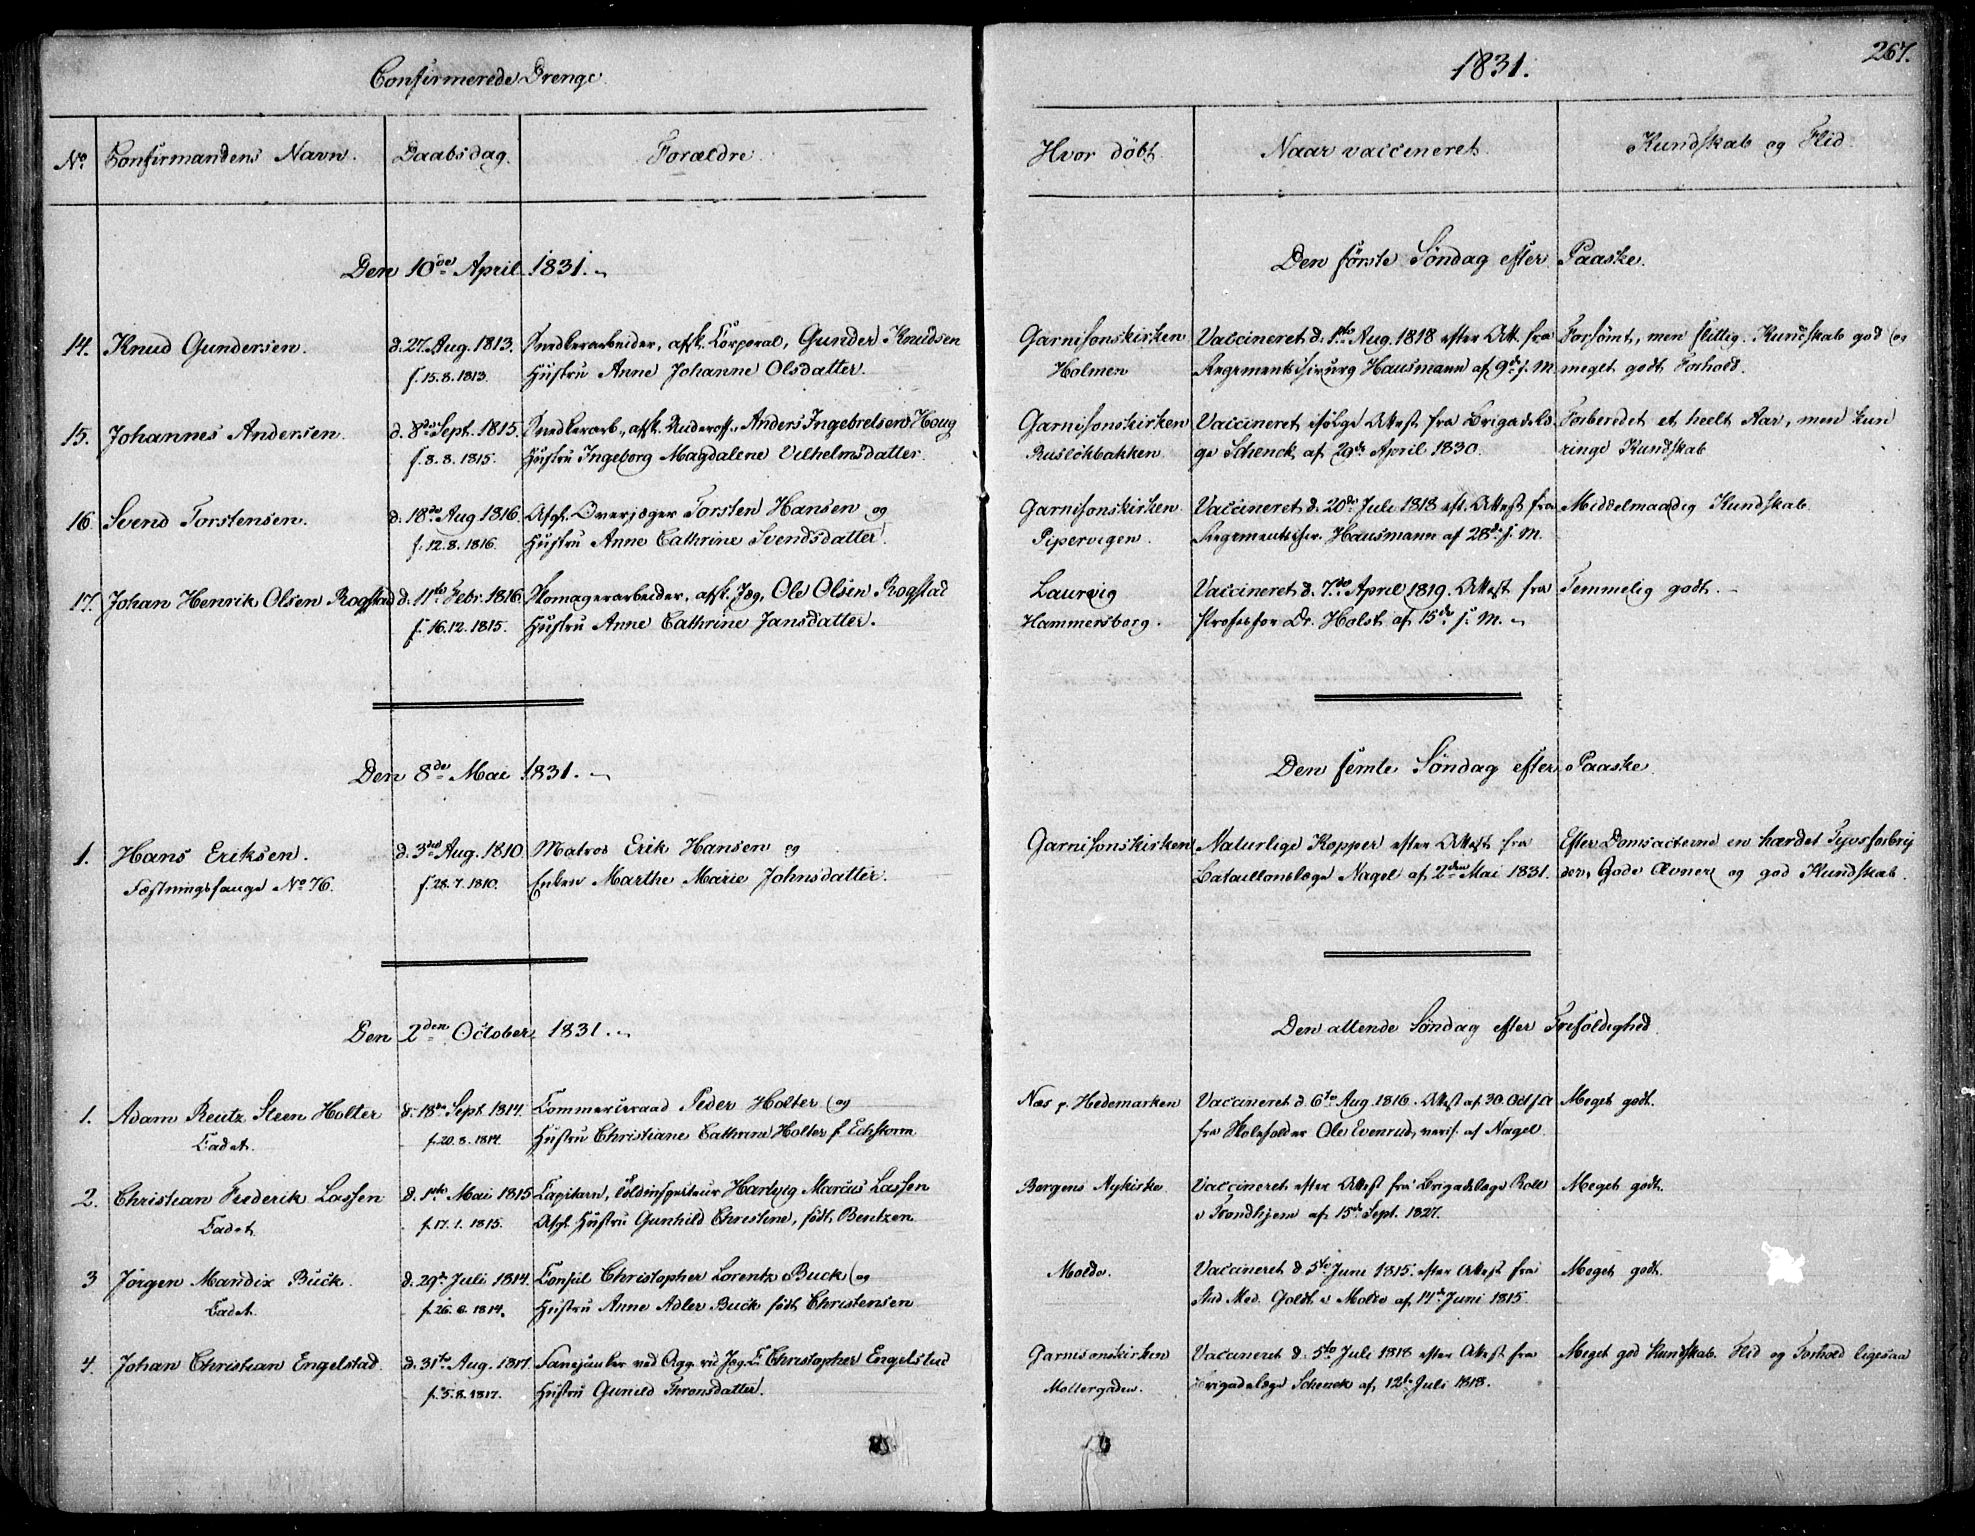 Confirmerede Drenge.
1831.
267.
No. Confirmandens Navn. Daabsdag. Forældre. Hvor döbt. Naar vaccineret. Kundskab og Flid.
Den 10de April 1831. Den förste Söndag efter Paaske.
14. Knud Gundersen. d. 27. Aug. 1813. Snedkerarbeider, afsk. Corporal, Gunder Knudsen Garnisonskirken Vaccineret d. 1ste Aug. 1818 efter Att. fra Forsömt, men flittig. Kundskab god (og
f. 15.8.1813. Hustru Anne Johanne Olsdatter. Holmen Regimentschirurg Hausmann af 9de s. M. meget godt Forhold.
15. Johannes Andersen. d. 8de Sept. 1815. Snedkerarb., afsk. Underoff., Anders Ingebretsen Houg Garnisonskirken Vaccineret ifölge Attest fra Brigadelæ Forberedet et heelt Aar, men kun
f. 8.8.1815. Hustru Ingeborg Magdalene Vilhelmsdatter.Ruslökbakken. ge Schenck af 29de April 1830. ringe Kundskab
16. Svend Torstensen. d. 18de Aug. 1816. Afg. Overjæger Torsten Hansen og Garnisonskirken Vaccineret d. 20de Juli 1818 eft. Attest fra Middelmaadig Kundskab.
f. 12.8.1816. Hustru Anne Cathrine Svendsdatter. Pipervigen. Regimentschir. Hausmann af 28de s. M.
17. Johan Henrik Olsen Rogstad d. 11te Febr. 1816. Skomagerarbeider, afsk. Jæg. Ole Olsen Rogstad Laurvig Vaccineret d. 7de April 1819. Attest fra Temmelig godt.
f. 16.12.1815. Hustru Anne Cathrine Jansdatter. Hammersborg. Professor Dr. Holst af 15de s. M.
Den 8de Mai 1831. Den femte Söndag efter Paaske.
1. Hans Eriksen. d. 3die Aug. 1810 Matros Erik Hansen og Garnisonskirken Naturlige Kopper efter Attest fra Efter Domsacterne en hærdet Tyvsforbry
Fæstningsfange No 76. f. 28.7.1810. Enken Marthe Marie Johnsdatter. Bataillonslæge Nagel af 2den Mai 1831. der, Gode Ævner og god Kundskab.
Den 2den October 1831. Den attende Söndag efter Trefoldighed.
1. Adam Reutz Steen Holter d. 18de Sept. 1814. Commerceraad Peder Holter (og Næs p. Hedemarken Vaccineret d. 6te Aug. 1816. Attest af 30. Oct. s. A. Meget godt.
Cadet. f. 20.8.1814. Hustru Christiane Cathrine Holter f. Echstorm fra Skoleholder Ole Evenrud, verif. af Nagel.
2. Christian Frederik Lassen d. 1ste Mai 1815 Capitain, Toldinspecteur Hartvig Marcus Lassen Bergens Nykirke Vaccineret efter Attest fra Brigadelæge Roll Meget godt.
Cadet. f. 17.1.1815. Afg. Hustru Gunhild Christine, födt Bentzen i Trondhjem af 15de Sept. 1827.
3 Jörgen Mandix Buck. d. 29de Juli 1814. Consul Christopher Lorentz Buck (og Molde. Vaccineret d. 5te Juni 1815. efter Attest fra Meget godt.
Cadet. f. 26.6.1814. Hustru Anne Adler Buck födt Christensen Stud. Med. Goldt i Molde af 14de Juni 1815.
4. Johan Christian Engelstad. d. 31te Aug. 1817. Fanejunker ved Agg. rid. Jæg. C. Christopher Engelstad Garnisonskirken Vaccineret d. 5te Juli 1818 efter Attest fra Meget god Kundskab. Flid og Forhold ligesaa
f. 5.8.1817. Hustru Gunild Thronsdatter. Mollergaden. Brigadelæge Schenck af 12te Juli 1818.